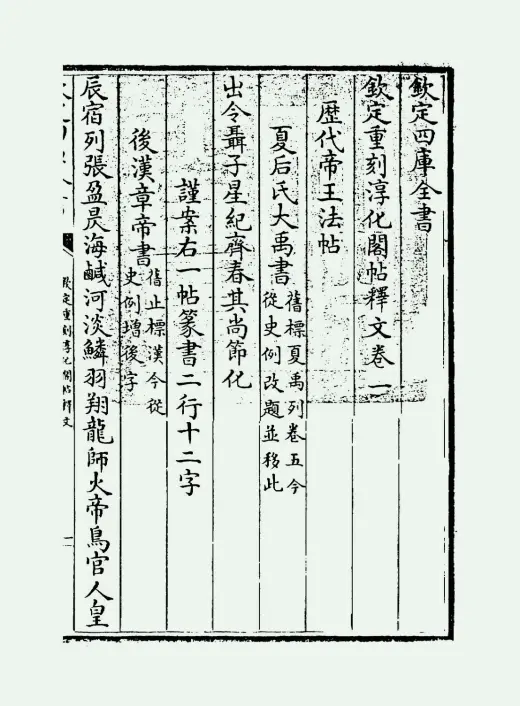 欽定四庫全書
欽定重刻淳化閣帖釋文卷一
歷代帝王法帖
夏后氏大禹書舊標夏禹列卷五今
從史例改題並移此
出令聶子星紀齊春其尚節化
謹案右一帖篆書二行十二字
後漢章帝書舊止標漢今從
史例增後字
辰宿列張盈昃海鹹河淡鱗羽翔龍師火帝鳥官人皇
欽定重刻淳化閣帖釋文